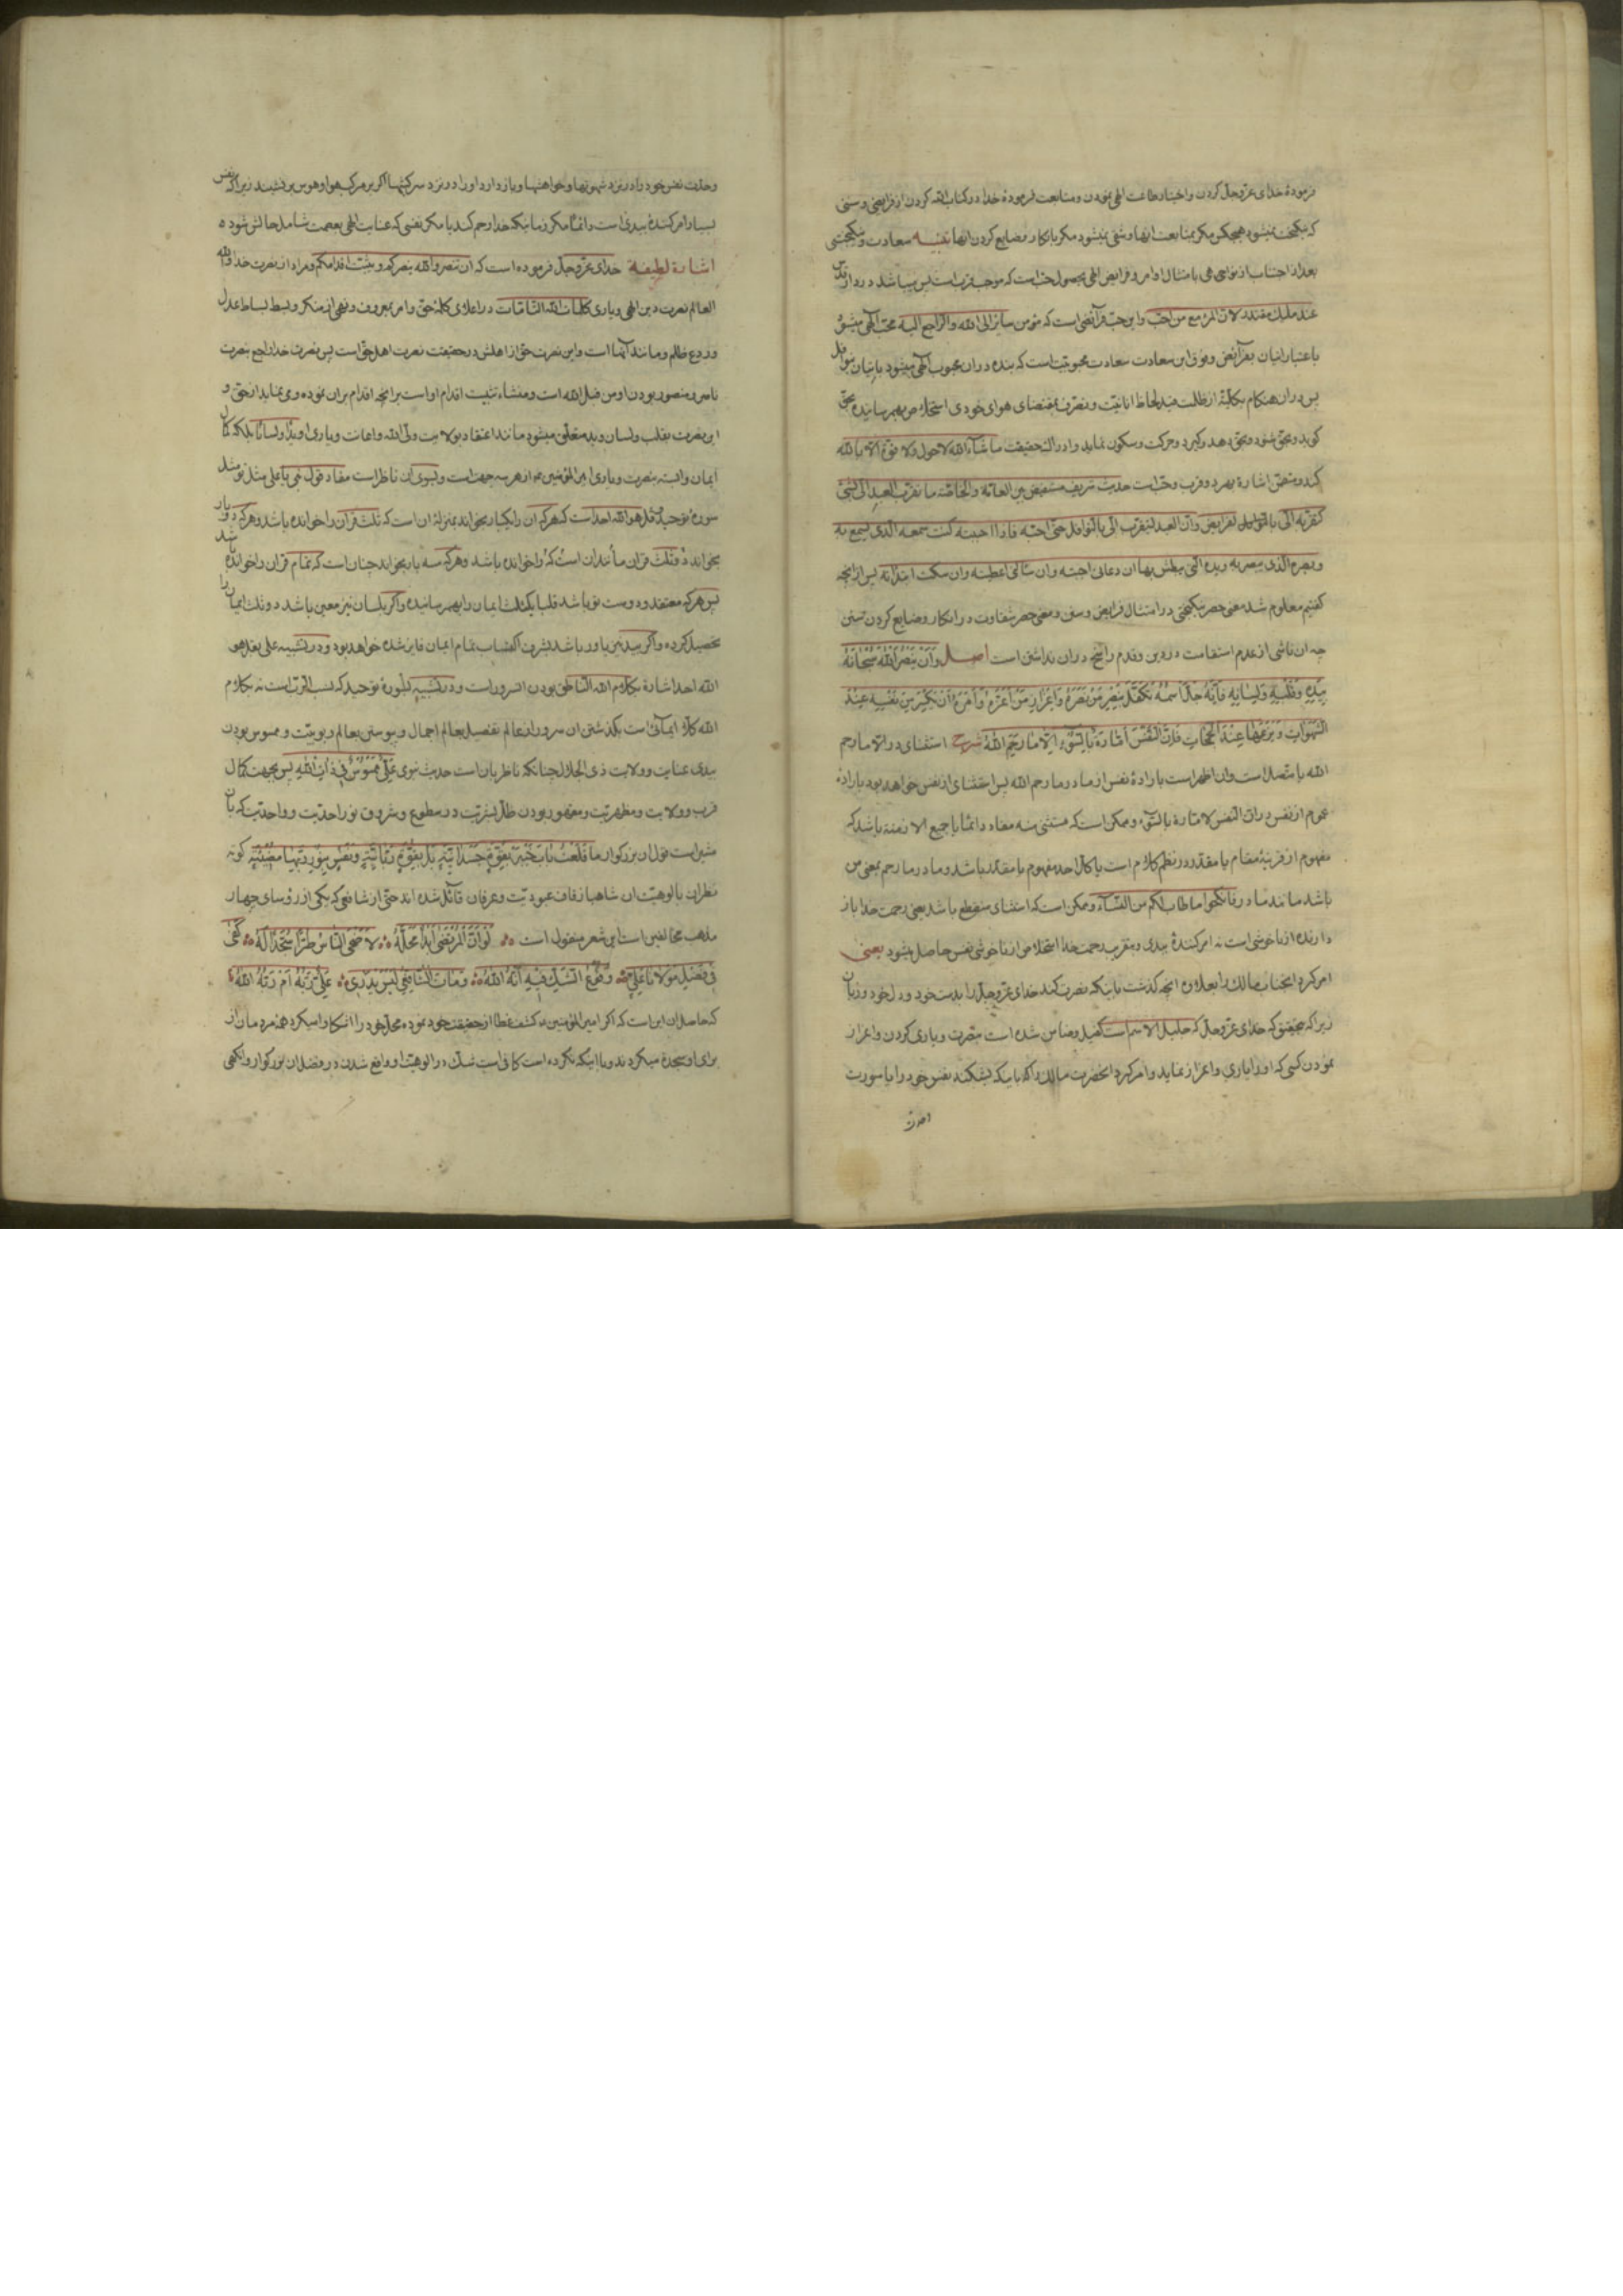 فرمودهٔ خدای عزّوجلّ کردن واختیار طاعت الهی نمودن ومتابعت فرمودهٔ خدا در کتاب الله کردن از فرایض وسنن
که نیکبخت نمیشود هیچکس مکر بمتابعت انها وشقی نمیشود مکر بانکار وضایع کردن انها سعادت ونیکبختی
بعد از اجتناب از نواهی بامتثال اوامر وفرایض الهی بحصول حب است که موجب قرب است
عند ملیک مقتدر لان المرء مع من احب واین حب فرائضی است که مؤمن سایر الی الله والراجع الیه محب الهی میشود
باعتبار اتیان بفرائض وفوق این سعادت سعادت محبوبیت است که بنده دران محبوب الهی میشود باتیان نوافل
پس دران هنکام بکلیّة از ظلمت قید لحاظ انانیّت وتصرّف بمقتضای هوای خودی استخلاص بهمرسانیده بحق
کوید وبحق شنود وبحق دهد وکیرد وحرکت وسکون نماید وادراک حقیقت ماشآء الله لاحول ولا قوّة الّا بالله
کند ومتضمن اشارة بهر دو قرب وحب است حدیث شریف مستفیض بین العامّة والخاصّة ما تقرّب العبد الی بشئ
کتقرّبه الیّ بالفرایض وانّ العبد لیتقرّب الیّ بالنوافل حتّی احبّه فاذا احببته کنت سمعه الّذی یسمع به
وبصره الّذی یبصر به ویده الّتی یبطش بها ان دعانی اجبته وان سألنی اعطیته وان سکت ابتدأته پس از انچه
کفتیم معلوم شد معنی حصر نیکبختی در امتثال فرایض وسنن ومعنی حصر شقاوت در انکار وضایع کردن سنن
چه ان ناشی از عدم استقامت در دین وقدم راسخ دران نداشتن است اصل وَاَنْ یَنْصُرَ اللهَ سُبْحَانَهُ
بِیَدِهِ وَقَلْبِهِ وَلِسَانِهِ فَاِنَّهُ جَلَّ اسْمُهُ تَکَفَّلَ بِنَصْرِ مَنْ نَصَرَهُ وَاِعْزَازِ مَنْ اَعَزَّهُ وَاَمَرَهُ اَنْ یَکْسِرَ مِنْ نَفْسِهِ عِنْدَ
الشَّهَوَاتِ وَیَزَعَهَا عِنْدَ الْجَمَحَاتِ فَاِنَّ النَّفْسَ اَمَّارَةٌ بِالسُّوءِ اِلَّا مَا رَحِمَ اللهُ شرح استثنای در الّا ما رحم
الله یا متصل است وان اظهر است باراده نفس از ما در ما رحم الله پس استثنای از نفس خواهد بود باراده
عموم از نفس در انّ النفس لامّارة بالسّوء وممکن است که مستثنی منه مفاد دائما یا جمیع الازمنة باشد که
مفهوم از قرینهٔ مقام یا مقدر در نظم کلام است یا کل احد مفهوم یا مقدر باشد وما در ما رحم بمعنی من
باشد مانند ما در فانکحوا ما طاب لکم من النّسآء وممکن است که استثنای منقطع باشد یعنی رحمت خدا باز
دارنده از ناخوشی است نه امر کنندهٔ ببدی وبقرب رحمت خدا استخلاص از ناخوشی نفس حاصل میشود یعنی
امر کرد انجناب مالک را بعلاوه انچه کذشت باینکه نصرت کند خدای عزّوجلّ را بدست خود ودل خود وزبان
زیرا که بتحقیق که خدای عزّوجلّ که جلیل الاسم است کفیل وضامن شده است بنصرت ویاری کردن واعزاز
نمودن کسی که او را یاری واعزاز نماید وامر کرد انحضرت مالک را که باینکه بشکند نفس خود را یا سورت
وحدّت نفس خود را در نزد شهوتها وخواهشها وباز دارد او را در نزد سرکشیها اکر بر مرکب هوا وهوس بر نشیند زیرا که نفس
بسیار امر کنندهٔ ببدی است دائما مکر زمانیکه خدا رحم کند یا مکر نفسی که عنایت الهی بعصمت شامل حالش شود
اشارة لطیفة خدای عزّوجلّ فرموده است که ان تنصروا الله ینصرکم ویثبّت اقدامکم ومراد از نصرت خدا والله
العالم نصرت دین الهی ویاری کلمات الله التّامّات در اعلای کلمهٔ حق وامر بمعروف ونهی از منکر وبسط بساط عدل
وردع ظالم ومانند آنها است واین نصرت حق از اهلش در حقیقت نصرت اهل حق است پس نصرت خدا راجع بنصرت
ناصر ومنصور بودن او من قبل الله است ومنشاء تثبیت اقدام او است بر انچه اقدام بران نموده ومی نماید از حق و
این نصرت بقلب ولسان وید متعلّق میشود مانند اعتقاد بولایت ولیّ الله واعانت ویاری او یدا ولسانا بلکه کمال
ایمان وابسته بنصرت ویاری امیر المؤمنین ع از هر سه جهت است وبسوی این ناظر است مفاد قول نبی یا علی مثل تو مثل
سورهٔ توحید قل هو الله احد است که هر که ان را یکبار بخواند بمنزلهٔ ان است که ثلث قران را خوانده باشد وهر که دو بار
بخواند دو ثلث قران مانند ان است که خوانده باشد وهر که سه بار بخواند چنان است که تمام قران را خوانده باشد
پس هر که معتقد ودوست تو باشد قلبا یکثلث ایمان را بهمرسانیده واکر بلسان نیز معین باشد دو ثلث ایمان را
تحصیل کرده واکر بید نیز یاور باشد بشرف اکتساب تمام ایمان فایز شده خواهد بود ودر تشبیه علی بقل هو
الله احد اشارة بکلام الله النّاطق بودن انسرور است ودر تشبیه بسورهٔ توحید که نسب الرّب است نه بکلام
الله کلّا ایمائی است بکذشتن ان سرور از عالم تفصیل بعالم اجمال وپیوستن بعالم ربوبیّت وممسوس بودن
بیدی عنایت وولایت ذی الجلال چنانکه ناظر بان است حدیث نبوی عَلِیٌّ مَمْسُوسٌ فِی ذَاتِ اللهِ پس بجهت کمال
قرب وولایت ومظهریّت ومقهور بودن ظلّ بشریّت در سطوع وشروق نور احدیّت وواحدیّت که بان
مشیر است قول ان بزرکوار مَا قَلَعْتُ بَابَ خَیْبَرَ بِقُوَّةٍ جَسَدَانِیَّةٍ بَلْ بِقُوَّةٍ رَبَّانِیَّةٍ وَنَفْسٍ بِنُورِ رَبِّهَا مُضِیْئَةٍ کوته
نظران بالوهیّت ان شاهباز قاف عبودیّت وعرفان قآئل شده اند حتّی از شافعی که یکی از رؤسای چهار
مذهب مخالفین است این شعر منقول است لَوْ اَنَّ الْمُرْتَضَی اَبْدَا مَحَلَّهُ لَاَضْحَی النَّاسُ طُرًّا سُجَّدًا لَهُ کَفَی
فِی فَضْلِ مَوْلَانَا عَلِیٍّ وُقُوعُ الشَّکِّ فِیهِ اَنَّهُ اللهُ وَمَاتَ الشَّافِعِیُّ لَیْسَ یَدْرِی عَلِیٌّ رَبُّهُ اَمْ رَبُّهُ اللهُ
که حاصل ان این است که اکر امیر المؤمنین ع کشف غطا از حقیقت خود نموده محل خود را اشکارا میکرد همه مردمان از
برای او سجده میکردند وبا اینکه نکرده است کافی است شک در الوهیّت او واقع شدن در فضل ان بزرکوار وانکهی